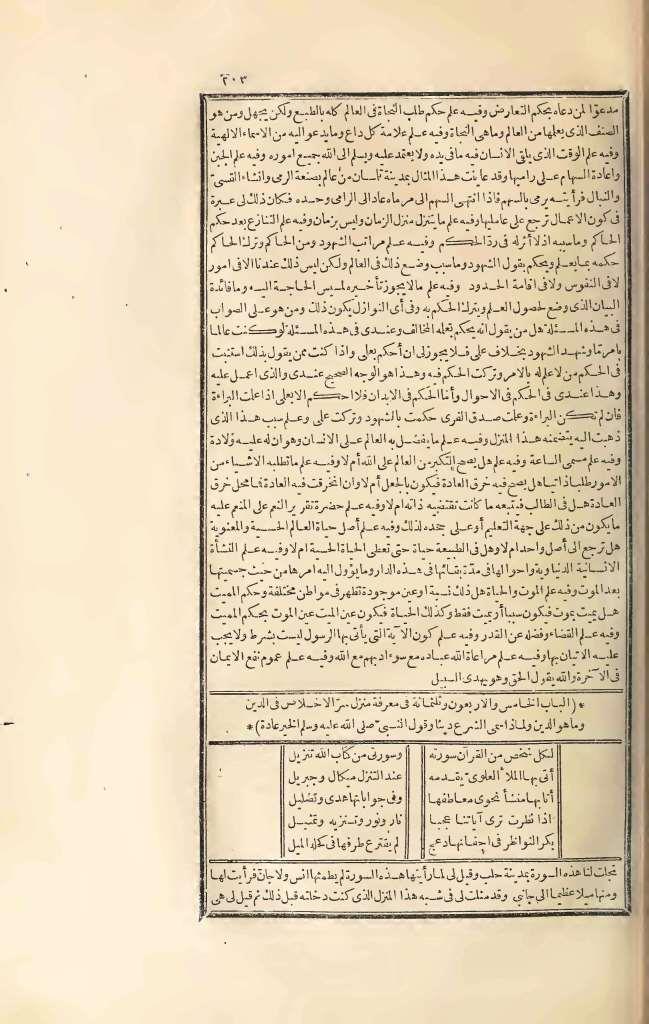 ٢٠٣
مدعوّ المن دعاه بحكم التعارض وفيه علم حكم طلب النجاة فى العالم كله بالطبع ولكن يجهل ومن هو
الصنف الذى يعلمها من العالم وماهى النجاة وفيه علم علامة كل داع وما يدعو اليه من الاسماء الالهية
وفيه علم الوقت الذى يلقى الانسان فيه ما فى يده ولا يعتمد عليه ويسلم الى الله جميع اموره وفيه علم الجبن
واعادة السهام على راميها وقد عاينت هذا المثال بمدينة تلمسان من عالم بصنعة الرمى وانشاء القسىّ
والنبال فرأيته يرمى بالسهم فاذا انتهى السهم الى مرماه عاد الى الرامى وحده فكان ذلك لى عبرة
فى كون الاعمال ترجع على عامليها وفيه علم ما يتنزل منزل الزمان وليس بزمان وفيه علم التنازع بعد حكم
الحاكم وما سببه اذ لا أثر له فى ردّ الحكم وفيه علم مراتب الشهود ومن الحاكم وترك الحاكم
حكمه بما يعلم ويحكم بقول الشهود وما سبب وضع ذلك فى العالم ولكن ليس ذلك عندنا الا فى امور
لا فى النفوس ولا فى اقامة الحدود وفيه علم ما لا يجوز تأخيره لمسيس الحاجة اليه وما فائدة
البيان الذى وضع لحصول العلم ويترك الحكم به وفى أى النوازل يكون ذلك ومن هو على الصواب
فى هذه المسئلة هل من يقول انه يحكم بعلمه المخالف وعندى فى هذه المسئلة لو كنت عالما
بامر ما وشهد الشهود بخلاف على فلا يجوز لى ان أحكم بعلمى واذا كنت ممن يقول بذلك استنبت
فى الحكم من لا علم له بالامر وتركت الحكم فيه وهذا هو الوجه الصحيح عندى والذى اعمل عليه
وهذا عندى فى الحكم فى الاحوال وأما الحكم فى الابدان فلا احكم الا بعلمى اذا علمت البراءة
فان لم تكن البراءة وعلمت صدق المفترى حكمت بالشهود وتركت على وعلم سبب هذا الذى
ذهبت اليه يتضمنه هذا المنزل وفيه علم ما يفضل به العالم على الانسان وهو ان له عليه ولادة
وفيه علم مسمى الساعة وفيه علم هل يصح التكبر من العالم على الله أم لا وفيه علم ما تطلبه الاشياء من
الامور طلبا ذاتيا هل يصح فيه خرق العادة فيكون بالجعل أم لا وان انخرقت فيه العادة فما محل خرق
العادة هل فى الطالب فيتبعه ما كانت تقتضيه ذاته ام لا وفيه علم حضرة تقرير النعم على المنعم عليه
ما يكون من ذلك على جهة التعليم أو على جهة لذلك وفيه علم أصل حياة العالم الحسية والمعنوية
هل ترجع الى أصل واحد ام لا وهل فى الطبيعة حياة حتى تعطى الحياة الحسية ام لا وفيه علم النشأة
الانسانية الدنياوية واحوالها فى مدّة بقائها فى هذه الدار وما يؤول اليه امرها من حيث جسميتها
بعد الموت وفيه علم الموت والحياة هل ذلك نسبة او عين موجودة تظهر فى مواطن مختلفة وحكم المميت
هل يميت بموت فيكون سببا أو يميت فقط وكذلك الحياة فيكون عين الميت عين الموت بحكم المميت
وفيه علم القضاء وفصله عن القدر وفيه علم كون الآية التى يأتى بها الرسول ليست بشرط ولا يجب
عليه الاتيان بها وفيه علم مراعاة الله عباده مع سوء ادبهم مع الله وفيه علم عموم نفع الايمان
فى الآخرة والله يقول الحق وهو يهدى السبيل
*(الباب الخامس والاربعون وثلثمائة فى معرفة منزل سرّ الاخلاص فى الدين
وما هو الدين ولماذا سمى الشرع دينا وقول النبىّ صلى الله عليه وسلم الخير عادة)*
لكل شخص من القرآن سورته وسورتى من كتاب الله تنزيل
أتى بها الملأ العلوىّ يقدمه عند التنزل ميكال وجبريل
أتى بها منشأ نحوى معاطفها وفى جواباتها هدى وتضليل
اذا نظرت ترى آياتنا عجبا نار ونور وتنزيه وتمثيل
بكر النواظر فى اجفانها دعج لم يفترع طرفها فى كحله الميل
تجلت لنا هذه السورة بمدينة حلب وقيل لى لما رأيتها هذه السورة لم يطمثها انس ولا جانّ فرأيت لها
ومنها ميلا عظيما الى جانبى وقد مثلت لى فى شبه هذا المنزل الذى كنت دخلته قبل ذلك ثم قيل لى هى